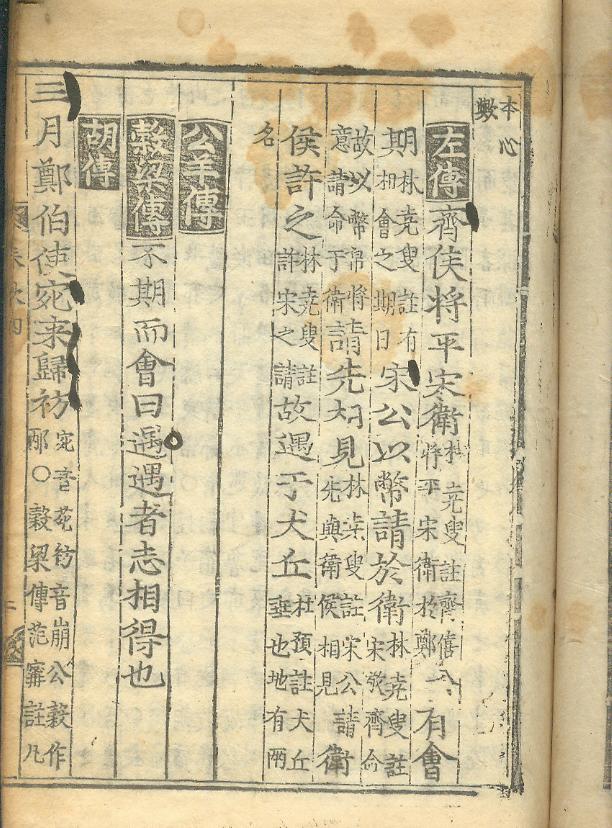 本心
數
左傳齊侯將平宋衛林堯叟註齊僖公將平宋衛於鄭有會
期林堯叟註有相會之期日宋公以幣請於衛林堯叟註宋敬齊命
故以幣帛將意請命于衛請先相見林堯叟註宋公請先與衛侯相見衛
侯許之林堯叟註許宋之請故遇于犬丘杜預註犬丘垂也地有兩
名
公羊傳
穀梁傳不期而會曰遇遇者志相得也
胡傳
三月鄭伯使宛来歸祊宛音苑祊音崩公穀作邴○穀梁傳范甯註凡